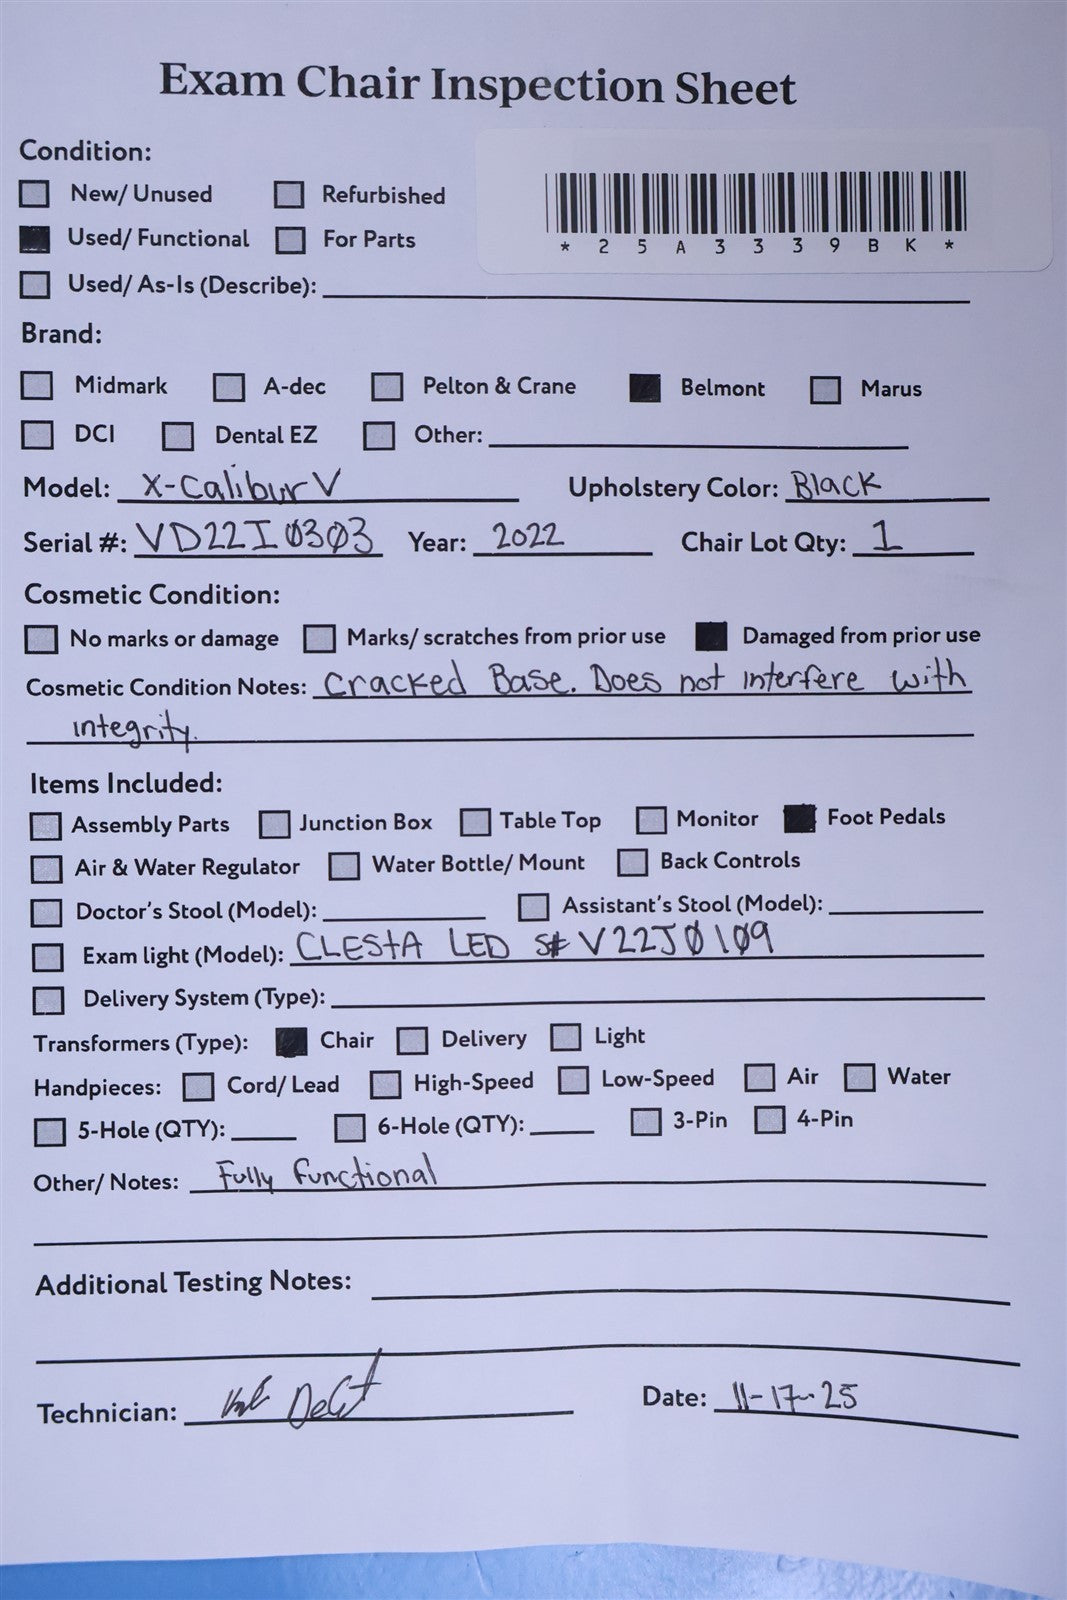 Exam Chair Inspection Sheet
Condition:
New/ Unused Refurbished
Used/ Functional For Parts
*25A3339BK*
Used/ As-Is (Describe):
Brand:
Midmark A-dec Pelton & Crane Belmont Marus
DCI Dental EZ Other:
Model: X-Calibur V Upholstery Color: Black
Serial #: VD22I0303 Year: 2022 Chair Lot Qty: 1
Cosmetic Condition:
No marks or damage Marks/ scratches from prior use Damaged from prior use
Cosmetic Condition Notes: Cracked Base. Does not interfere with
integrity.
Items Included:
Assembly Parts Junction Box Table Top Monitor Foot Pedals
Air & Water Regulator Water Bottle/ Mount Back Controls
Doctor's Stool (Model): Assistant's Stool (Model):
Exam light (Model): CLEStA LED S# V22J0109
Delivery System (Type):
Transformers (Type): Chair Delivery Light
Handpieces: Cord/ Lead High-Speed Low-Speed Air Water
5-Hole (QTY): 6-Hole (QTY): 3-Pin 4-Pin
Other/ Notes: Fully functional
Additional Testing Notes:
Technician:
Date: 11-17-25